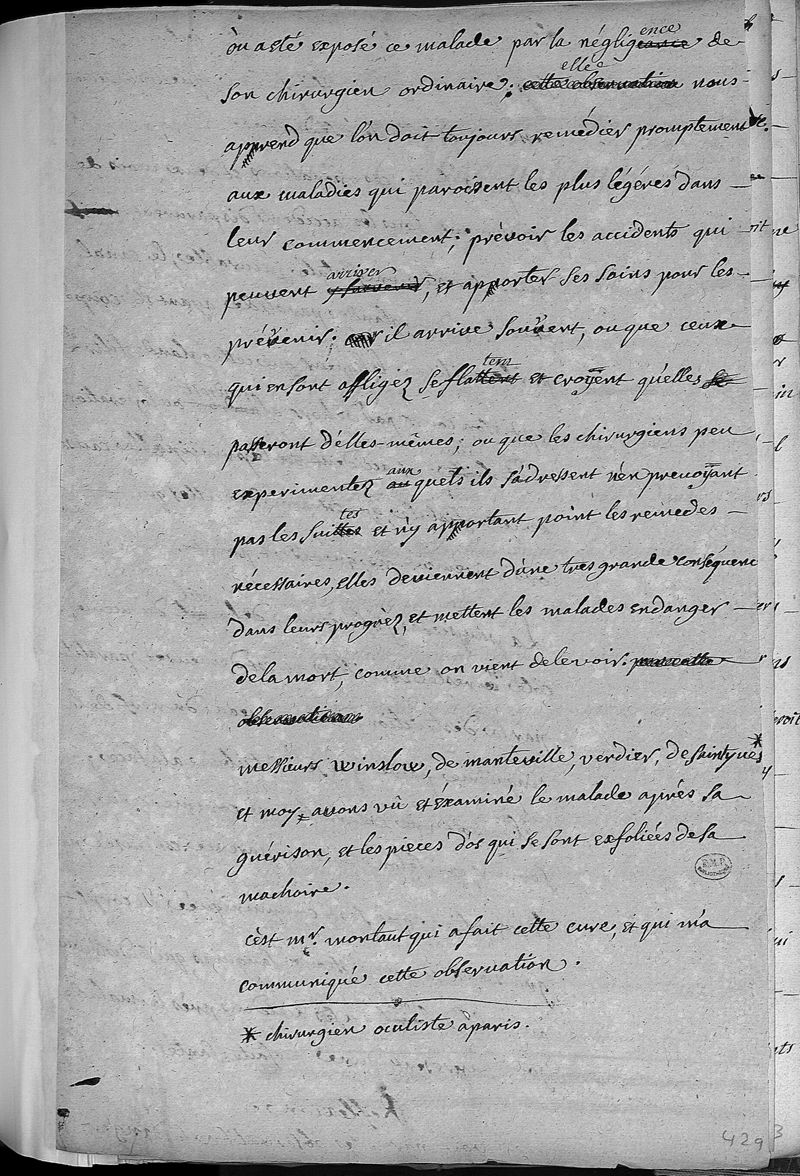 où a esté exposé ce malade par la négligence de
son chirurgien ordinaire; elle nous
apprend que l'on doit toujours remédier promptement
aux maladies qui paroissent les plus légéres dans
leur commencement; prévoir les accidents qui
peuvent arriver, et apporter ses soins pour les
prévenir. il arrive souvent, ou que ceux
qui en sont affligez se flattent et croyent qu'elles se
passeront d'elles-mêmes; ou que les chirurgiens peu
experimentez auxquels ils s'adressent n'en prevoyant
pas les suittes et n'y apportant point les remedes
nécessaires, elles deviennent d'une tres grande conséquence
dans leurs progrèz, et mettent les malades en danger
de la mort, comme on vient de le voir. par cette
observation
messieurs winslow, de manteville, verdier, de saint yves *
et moy avons vû et éxaminé le malade après sa
guérison, et les pieces d'os qui se sont exfoliées de sa
machoire.
c'est mr. montaut qui a fait cette cure, et qui m'a
communiqué cette observation.
* chirurgien oculiste à paris.
429